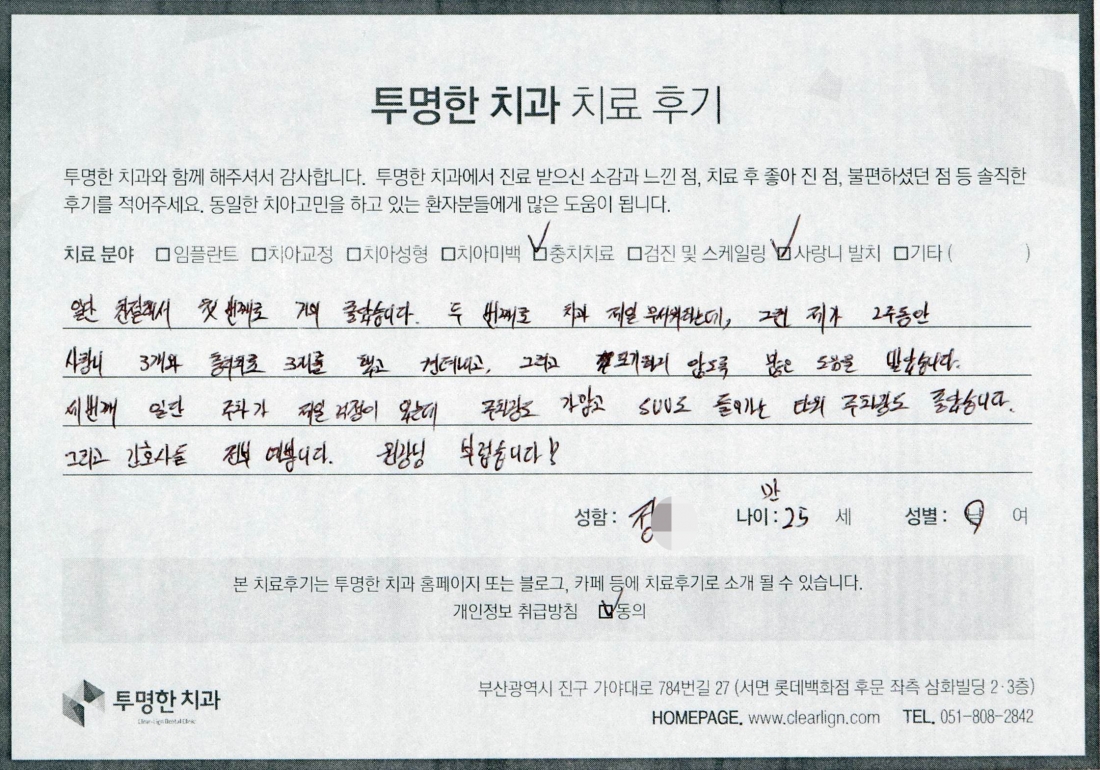 투명한 치과 치료 후기
투명한 치과와 함께 해주셔서 감사합니다. 투명한 치과에서 진료 받으신 소감과 느낀 점, 치료 후 좋아 진 점, 불편하셨던 점 등 솔직한
후기를 적어주세요. 동일한 치아고민을 하고 있는 환자분들에게 많은 도움이 됩니다.
치료 분야 □임플란트 □치아교정 □치아성형 □치아미백 ☑충치치료 □검진 및 스케일링 ☑사랑니 발치 □기타 ( )
일단 친절해서 첫 번째로 거의 좋았습니다. 두 번째로 치과 제일 무서워하는데, 그런 제가 2주동안
사랑니 3개와 충치치료 3개를 했고 견뎌내고, 그리고 포기하지 않도록 많은 도움을 받았습니다.
세번째 일단 주차가 제일 걱정이 있는데 주차장도 가깝고 SUV도 들어가는 단위 주차장도 좋았습니다.
그리고 간호사들 전부 예쁩니다. 원장님 부럽습니다!
성함 : 정 나이 : 만 25 세 성별 : 남 여
본 치료후기는 투명한 치과 홈페이지 또는 블로그, 카페 등에 치료후기로 소개 될 수 있습니다.
개인정보 취급방침 ☑동의
투명한 치과
Clean-lign Dental Clinic
부산광역시 진구 가야대로 784번길 27 (서면 롯데백화점 후문 좌측 삼화빌딩 2·3층)
HOMEPAGE. www.clearlign.com TEL. 051-808-2842